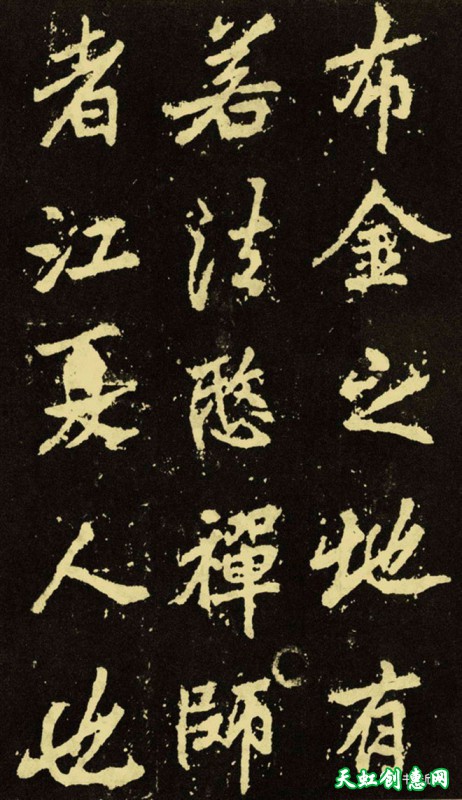 布金之地有
若法愍禪師
者江夏人也
天虹创意网